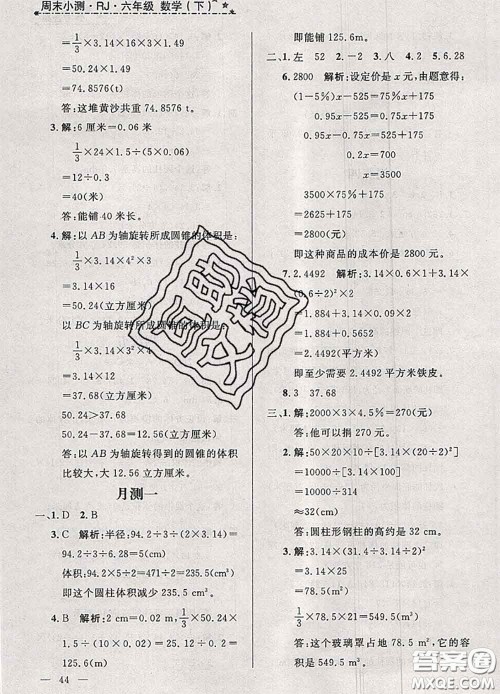 周末小测·RJ·六年级 数学(下)
=1/3×3.14×16×3×1.5
=50.24×1.5
=74.8576(t)
答:这堆黄沙共重 74.8576(t)
3. 解:6 厘米=0.06 米
1/3×24×1.5÷(5×0.06)
=12÷0.3
=40(米)
答:能铺 40 米。
4. 解:以 AB 为轴旋转所成圆锥的体积是:
1/3×3.14×4²×3
=3.14×16
=50.24(立方厘米)
以 BC 为轴旋转所成圆锥的体积是:
=3.14×12
=37.68(立方厘米)
50.24>37.68
50.24-37.68=12.56(立方厘米)
答:以 AB 为轴旋转得到的圆锥的体积
比较大,大 12.56 立方厘米。
月测一
一、1. D 2. B
3. C 解析:半径:94.2÷3÷(2×3.14)=
94.2÷3÷6.28=5(cm)
体积:94.2×5÷2=471÷2=235.5(cm³)
即这个圆柱体积减少 235.5 cm³。
4. B 解析:2 cm=0.02 m,1/3×50.24×
1.5÷(10×0.02)=25.12÷0.2=
125.6(m)
— 44 —
二、1. 左 52 2. -2 3. 40 4. 2 5. 6.28
6. 2800 解析:设定价是 x 元,由题意得:
(1-5%)x-525=75%x+175
0.95x-525=0.75x+175
0.95x-0.75x=525+175
0.2x=700
x=3500
3500×75%+175
=2625+175
=2800(元)
即这种商品的成本价是 2800 元。
7. 2.4492 解析:3.14×0.6×1+3.14×
(0.6÷2)²×2
=1.884+3.14×0.09×2
=1.884+0.5652
=2.4492(平方米)
即至少需要 2.4492 平方米铁皮。
8. 3 37.68
三、1. 解:2000×3×4.5%=270(元)
答:他可以捐 270 元。
2. 解:50×20×10÷[3.14×(20÷2)²]
=10000÷[3.14×10²]
=10000÷314
≈32(cm)
答:圆柱形钢柱的高约是 32 cm。
3. 解:3.14×(10÷2)²
=3.14×25
答:这个玻璃罩占地 78.5 m²,它的容
积是 549.5 m³。
答案圈
MXQE.COM